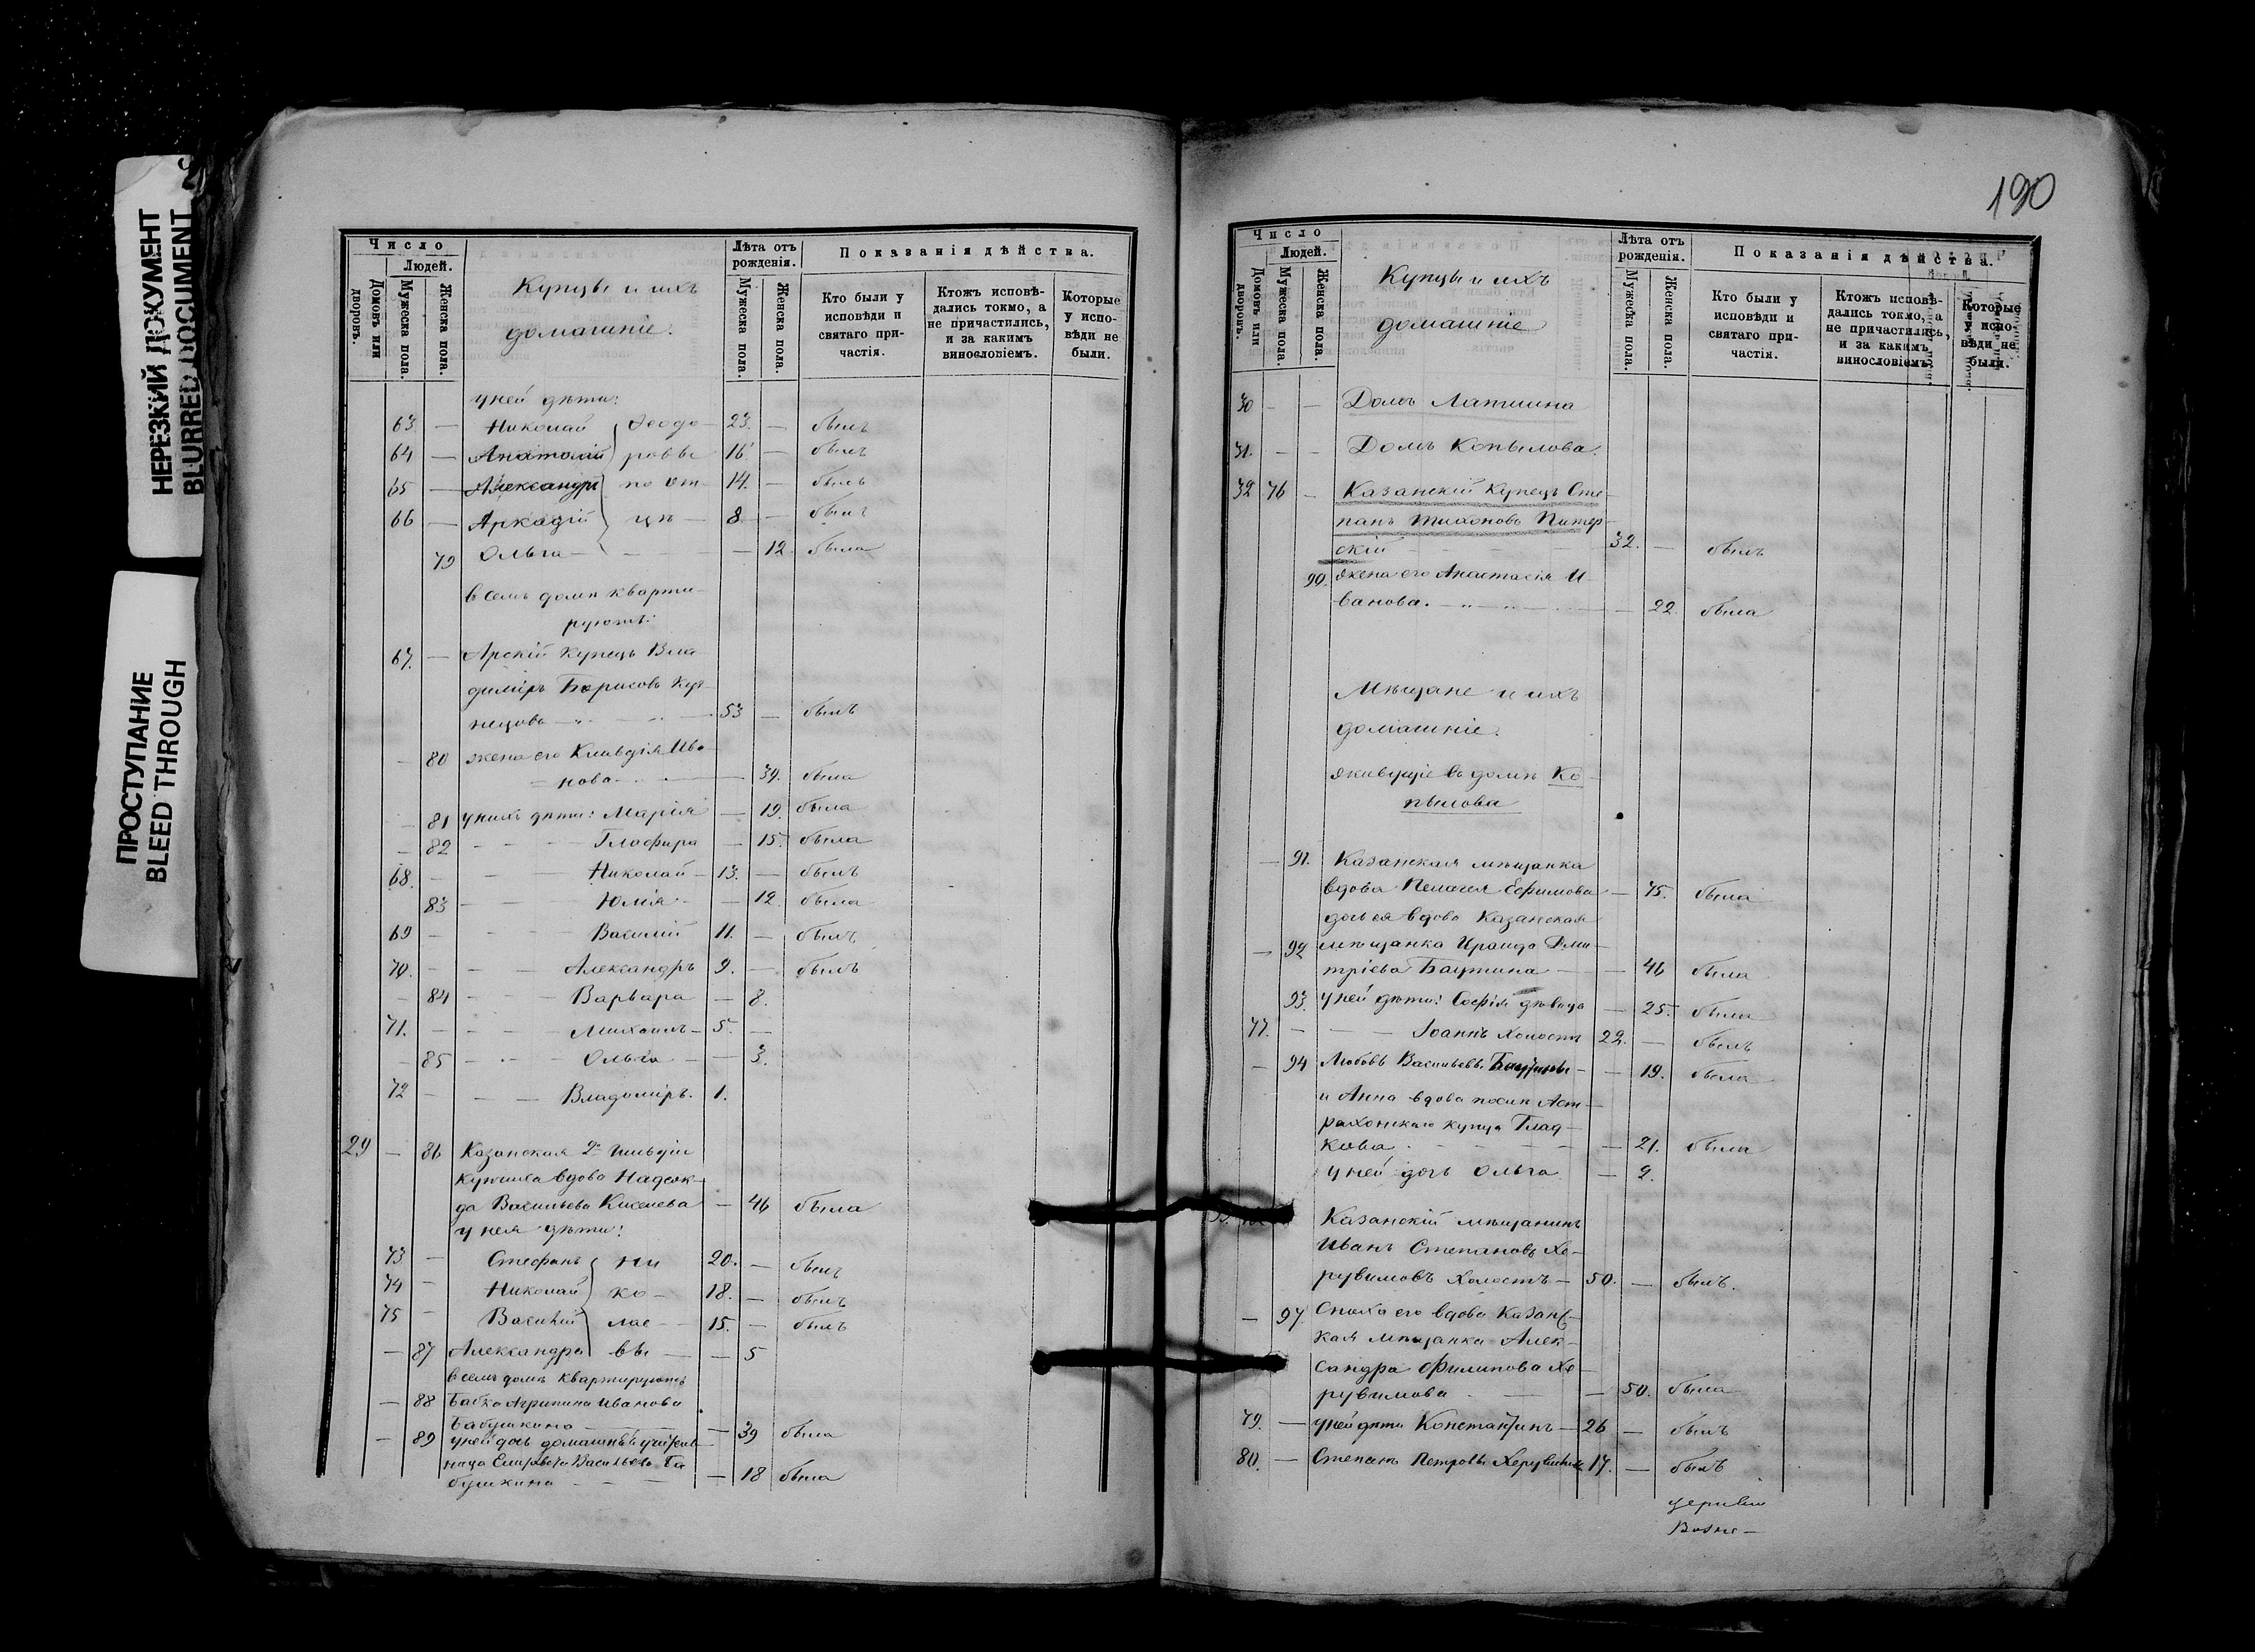 НЕРЕЗКИЙ ДОКУМЕНТ
BLURRED DOCUMENT
ПРОСТУПАНИЕ
BLEED THROUGH
Число
Людей.
Домовъ или дворовъ.
Мужеска пола.
Женска пола.
Купцы и ихъ
домашніе.
Лѣта отъ рожденія.
Мужеска пола.
Женска пола.
Показанія дѣйства.
Кто были у исповѣди и святаго причастія.
Ктожъ исповѣдались токмо, а не причастились, и за какимъ винословіемъ.
Которые у исповѣди не были.
у ней дѣти:
63 — Николай Ѳеодо- 23. — былъ
64 — Анатолій ровы 16 — былъ
65 — Александръ по от- 14. — былъ
66 — Аркадій цѣ — 8 — былъ
79 Ольга — — 12. была
в семъ домѣ кварти-
руютъ:
67. — Арскій купецъ Вла-
димиръ Борисовъ Куз-
нецовъ — 53 — былъ
— 80 жена его Клавдія Ива-
нова — 39. была
— 81 у нихъ дѣти: Марія — 19. была
— 82 Глафира — 15. была
68. — Николай — 13. — былъ
83 Юлія — 12. была
69 — Василій 11. — былъ
70. — Александръ 9. — былъ
— 84 Варвара — 8.
71. — Михаилъ — 5. —
— 85 Ольга — 3.
72 — Владиміръ. 1.
29 — 86 Казанская 2й гильдіи
купчиха вдова Надеж-
да Васильева Киселева — 46 была
у нея дѣти:
73 — Стефанъ Ни 20. — былъ
74 — Николай ко- 18. — былъ
75 — Василій лае- 15. — былъ
— 87 Александра вы — 5
в семъ домѣ квартируютъ
— 88 Агрипина Иванова
Бабушкина — 39 была
— 89 у ней дочь домашняя учитель-
ница Елизавета Васильева Ба-
бушкина — 18 была
190
Число
Людей.
Домовъ или дворовъ.
Мужеска пола.
Женска пола.
Купцы и ихъ
домашніе
Лѣта отъ рожденія.
Мужеска пола.
Женска пола.
Показанія дѣйства.
Кто были у исповѣди и святаго причастія.
Ктожъ исповѣдались токмо, а не причастились, и за какимъ винословіемъ.
Которые у исповѣди не были.
30 — — Домъ Лапшина
31. — — Домъ Копылова.
32 76 — Казанскій купецъ Сте-
панъ Тихоновъ Питер-
скій 32. — былъ
90. жена его Анастасія И-
ванова. — 22. была
Мѣщане и ихъ
домашніе.
живущіе въ домѣ Ко-
пылова
— 91. Казанская мѣщанка
вдова Пелагея Ефимова — 75. была
дочь ея вдова Казанская
— 92 мѣщанка Ираида Дми-
тріева — 46 была
93. у ней дѣти: Софія дѣвица — 25. была
77. — Іоаннъ холостъ 22. — былъ
— 94 Любовь Васильевы — 19. была
и Анна вдова послѣ Аст-
раханскаго купца Глад-
кова — 21. была
у ней дочь Ольга — 2.
Казанскій мѣщанинъ
Иванъ Степановъ Хе-
рувимовъ холостъ — 50. — былъ.
— 97 Сноха его вдова Казанс-
кая мѣщанка Алек-
сандра Филипова Хе-
рувимова — 50. была
79. — у ней дѣти Константинъ — 26 — былъ
80. — Степанъ Петровы Херувимовы 17. — былъ
церкви
Возне-